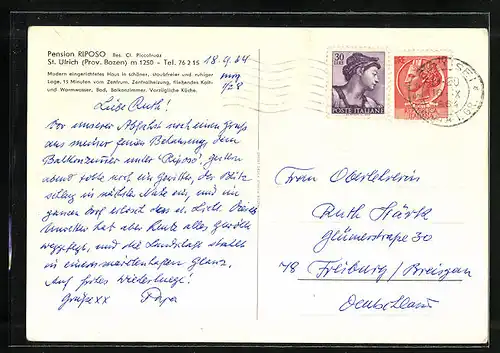 Pension RIPOSO Bes. Cl. Piccolruaz
St. Ulrich (Prov. Bozen) m 1250 - Tel. 76 2 15
Modern eingerichtetes Haus in schöner, staubfreier und ruhiger
Lage, 15 Minuten vom Zentrum, Zentralheizung, fließendes Kalt-
und Warmwasser, Bad, Balkonzimmer. Vorzügliche Küche.
18.9.64
Liebe Ruth!
Vor unserer Abfahrt noch einen Gruss
aus meiner feinen Behausung, dem
Balkonzimmer unter "Riposo". Gestern
abend gab's noch ein Gewitter, der Blitz
schlug in nächster Nähe ein, und im
ganzen Dorf erlosch das el. Licht.
hat aber heute alles Gewölk
weggefegt, und die Landschaft strahlt
in einem märchenhaften Glanz.
Auf frohes Wiedersehen!
Papa
30 LIRE
POSTE ITALIANE
Frau Oberlehrerin
Ruth Stärk
Glümerstraße 30
78 Freiburg / Breisgau
Deutschland